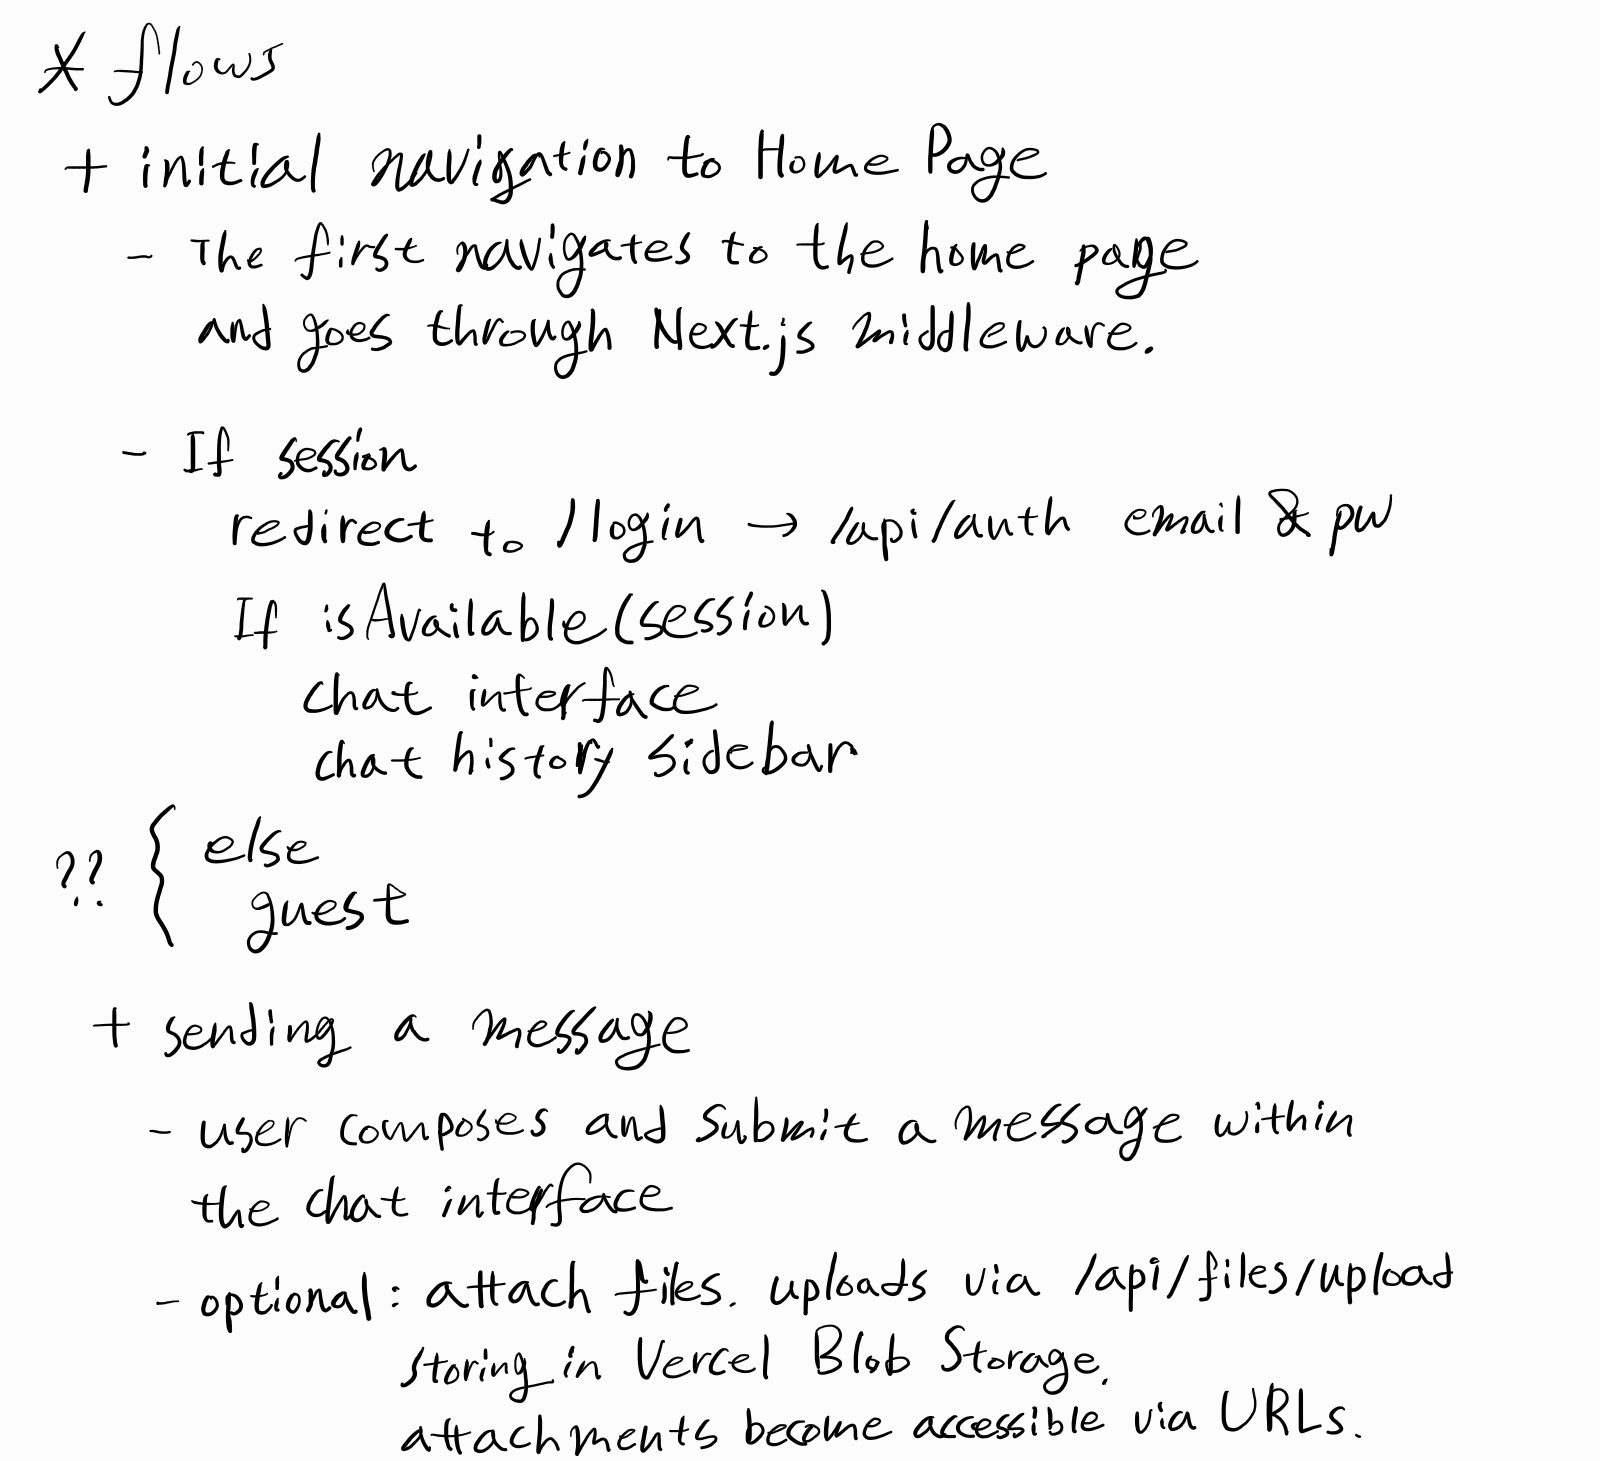 * flows
+ initial navigation to Home Page
- The first navigates to the home page
and goes through Next.js middleware.
- If session
redirect to /login → /api/auth email & pw
If isAvailable(session)
chat interface
chat history sidebar
?? { else
guest
+ sending a message
- user composes and submit a message within
the chat interface
- optional: attach files. uploads via /api/files/upload
storing in Vercel Blob Storage.
attachments become accessible via URLs.